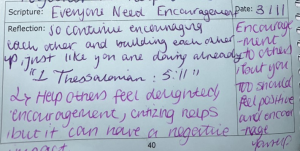 Scripture: Everyone Need Encouragement Date: 3/11
Reflection: so continue encouraging
each other and building each other
up, just like you are doing already
"I Thessalonian: 5:11"
Help others feel delighted,
encouragement, critizing helps
but it can have a negative
impact
Encourage
-ment
to others
but you
too should
feel positive
and encou
rage
yourself.
40